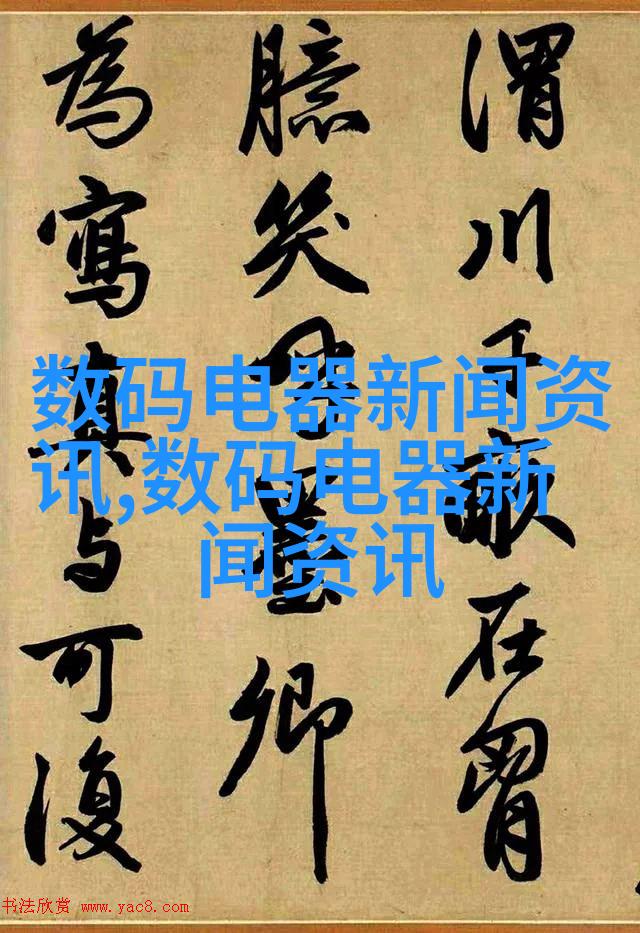 渭川千畝在胷
臆笑呼墨卿
為寫真与可復
数码电器新闻资
讯,数码电器新
闻资讯
书法欣赏 www.yac8.com